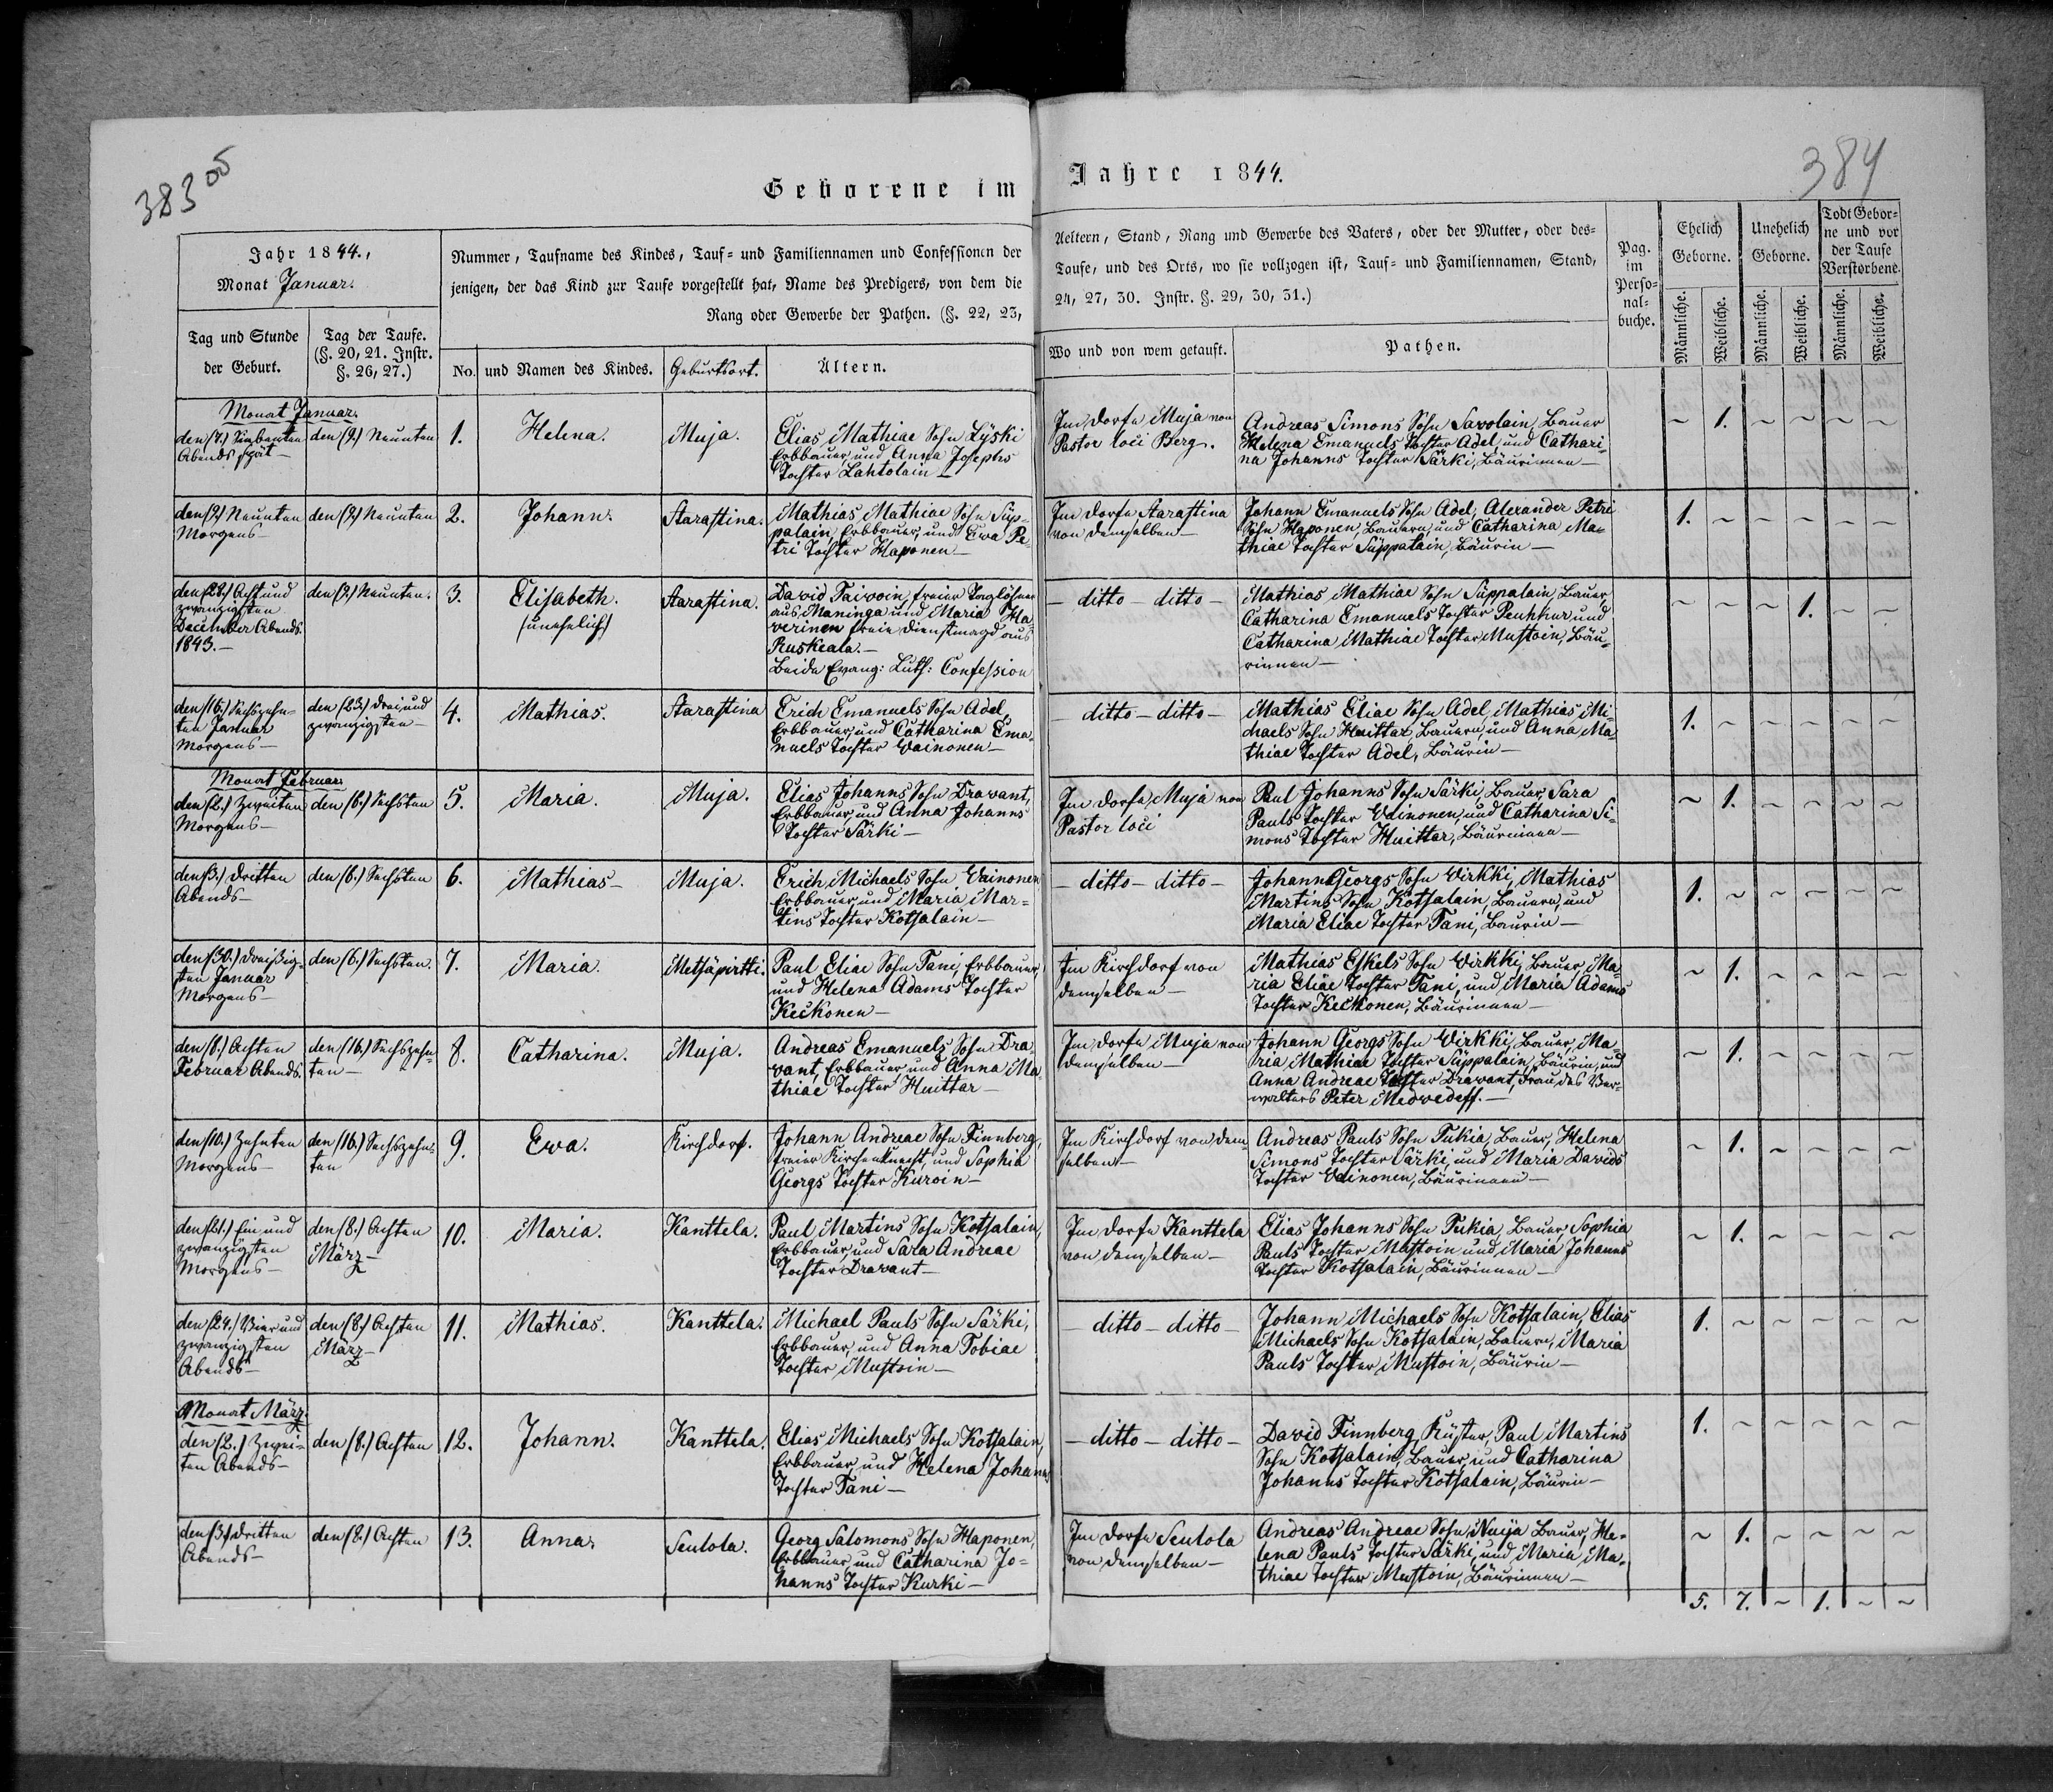 383 05
384
Geborene im Jahre 1844.
Jahr 1844.,
Monat Januar.
Nummer, Taufname des Kindes, Tauf- und Familiennamen und Confessionen der
Aeltern, Stand, Rang und Gewerbe des Vaters, oder der Mutter, oder des-
jenigen, der das Kind zur Taufe vorgestellt hat, Name des Predigers, von dem die
Taufe, und des Orts, wo sie vollzogen ist, Tauf- und Familiennamen, Stand,
Rang oder Gewerbe der Pathen. (§. 22, 23,
24, 27, 30. Instr. §. 29, 30, 31.)
Pag.
im
Perso-
nal-
buche.
Ehelich
Geborne.
Unehelich
Geborne.
Todt Gebor-
ne und vor
der Taufe
Verstorbene.
Männliche.
Weibliche.
Männliche.
Weibliche.
Männliche.
Weibliche.
Tag und Stunde
der Geburt.
Tag der Taufe.
(§. 20, 21. Instr.
§. 26, 27.)
No.
und Namen des Kindes.
Geburtsort.
Ältern.
Wo und von wem getauft.
Pathen.
Monat Januar.
den (7.) Siebenten
Abends spät –
den (9.) Neunten
1.
Helena.
Muja.
Elias Mathiae Sohn Lyski
Erbbauer und Anna Josephs
Tochter Lahtolain –
Im Dorfe Muja von
Pastor loci Berg.
Andreas Simons Sohn Savolain, Bauer
Helena Emanuels Tochter Adel und Cathari-
na Johanns Tochter Särki, Bäurinnen –
~ 1. ~ ~ ~ ~
den (9.) Neunten
Morgens –
den (9.) Neunten
2.
Johann.
Starastina.
Mathias Mathiae Sohn Süp-
palain, Erbbauer, und Ewa Pe-
tri Tochter Haponen –
Im Dorfe Starastina
von demselben –
Johann Emanuels Sohn Adel, Alexander Petri
Sohn Haponen, Bauern, und Catharina Ma-
thiae Tochter Süppalain, Bäurin –
1. ~ ~ ~ ~ ~
den (28.) Acht und
zwanzigsten
December Abends.
1843. –
den (9.) Neunten.
3.
Elisabeth.
(unehelich)
Starastina.
David Taivoin, freier Taglöhner
aus Maninga und Maria Ha-
verinen freie Dienstmagd aus
Ruskeala. –
Beide Evang: Luth: Confession
– ditto – ditto –
Mathias Mathiae Sohn Süppalain, Bauer,
Catharina Emanuels Tochter Peuhkur und
Catharina Mathiae Tochter Mustoin, Bäu-
rinnen –
~ ~ ~ 1. ~ ~
den (16.) Sechszehn-
ten Januar
Morgens –
den (23.) Drei und
zwanzigsten –
4.
Mathias.
Starastina
Erich Emanuels Sohn Adel,
Erbbauer, und Catharina Ema-
nuels Tochter Wainonen –
– ditto – ditto –
Mathias Eliae Sohn Adel, Mathias Mi-
chaels Sohn Huittar Bauern, und Anna Ma-
thiae Tochter Adel, Bäurin –
1. ~ ~ ~ ~ ~
Monat Februar.
den (2.) Zweiten
Morgens –
den (6.) Sechsten
5.
Maria.
Muja.
Elias Johanns Sohn Dravant,
Erbbauer, und Anna Johanns
Tochter Särki –
Im Dorfe Muja von
Pastor loci
Paul Johanns Sohn Särki, Bauer, Sara
Pauls Tochter Wainonen, und Catharina Si-
mons Tochter Huittar, Bäurinnen –
~ 1. ~ ~ ~ ~
den (3.) Dritten
Abends –
den (6.) Sechsten
6.
Mathias –
Muja.
Erich Michaels Sohn Wainonen
Erbbauer und Maria Mar-
tins Tochter Kotsalain –
– ditto – ditto –
Johann Georgs Sohn Wirkki, Mathias
Martins Sohn Kotsalain, Bauern, und
Maria Eliae Tochter Tani, Bäurin –
1. ~ ~ ~ ~ ~
den (30.) Dreißig-
sten Januar
Morgens –
den (6.) Sechsten.
7.
Maria.
Metsäpirtti.
Paul Eliae Sohn Tani, Erbbauer
und Helena Adams Tochter
Keckonen –
Im Kirchdorf von
demselben –
Mathias Eskels Sohn Wirkki, Bauer, Ma-
ria Eliae Tochter Tani, und Maria Adams
Tochter Keckonen, Bäurinnen –
~ 1. ~ ~ ~ ~
den (8.) Achten
Februar Abends.
den (16.) Sechszehn-
ten –
8.
Catharina.
Muja.
Andreas Emanuels Sohn Dra-
vant, Erbbauer und Anna Ma-
thiae Tochter Huittar –
Im Dorfe Muja von
demselben –
Johann Georgs Sohn Wirkki, Bauer, Ma-
ria Mathiae Tochter Süppalain, Bäurin, und
Anna Andreae Tochter Dravant, Frau des Ver-
walters Peter Medwedeff. –
~ 1. ~ ~ ~ ~
den (10.) Zehnten
Morgens –
den (16.) Sechszehn-
ten
9.
Ewa.
Kirchdorf.
Johann Andreae Sohn Finnberg,
freier Kirchenknecht, und Sophia
Georgs Tochter Kuroin –
Im Kirchdorf von dem-
selben –
Andreas Pauls Sohn Tukia, Bauer, Helena
Simons Tochter Särki, und Maria Davids
Tochter Wainonen, Bäurinnen –
~ 1. ~ ~ ~ ~
den (21.) Ein und
zwanzigsten
Morgens –
den (8.) Achten
März –
10.
Maria.
Kanttela.
Paul Martins Sohn Kotsalain,
Erbbauer, und Sara Andreae
Tochter Dravant –
Im Dorfe Kanttela
von demselben –
Elias Johanns Sohn Tukia, Bauer, Sophia
Pauls Tochter Mustoin und Maria Johanns
Tochter Kotsalain, Bäurinnen –
~ 1. ~ ~ ~ ~
den (24.) Vier und
zwanzigsten
Abends –
den (8.) Achten
März –
11.
Mathias.
Kanttela.
Michael Pauls Sohn Särki,
Erbbauer, und Anna Tobiae
Tochter Mustoin –
– ditto – ditto –
Johann Michaels Sohn Kotsalain, Elias
Michaels Sohn Kotsalain, Bauern, Maria
Pauls Tochter Mustoin, Bäurin –
1. ~ ~ ~ ~ ~
Monat März.
den (2.) Zwei-
ten Abends –
den (8.) Achten
12.
Johann.
Kanttela.
Elias Michaels Sohn Kotsalain,
Erbbauer, und Helena Johanns
Tochter Tani –
– ditto – ditto –
David Finnberg Küster, Paul Martins
Sohn Kotsalain, Bauer, und Catharina
Johanns Tochter Kotsalain, Bäurin –
1. ~ ~ ~ ~ ~
den (3.) Dritten
Abends –
den (8.) Achten
13.
Anna.
Seutola.
Georg Salomons Sohn Haponen,
Erbbauer und Catharina Jo-
hanns Tochter Kurki –
Im Dorfe Seutola
von demselben –
Andreas Andreae Sohn Nuija Bauer, He-
lena Pauls Tochter Särki, und Maria Ma-
thiae Tochter Mustoin, Bäurinnen –
~ 1. ~ ~ ~ ~
5. 7. ~ 1. ~ ~